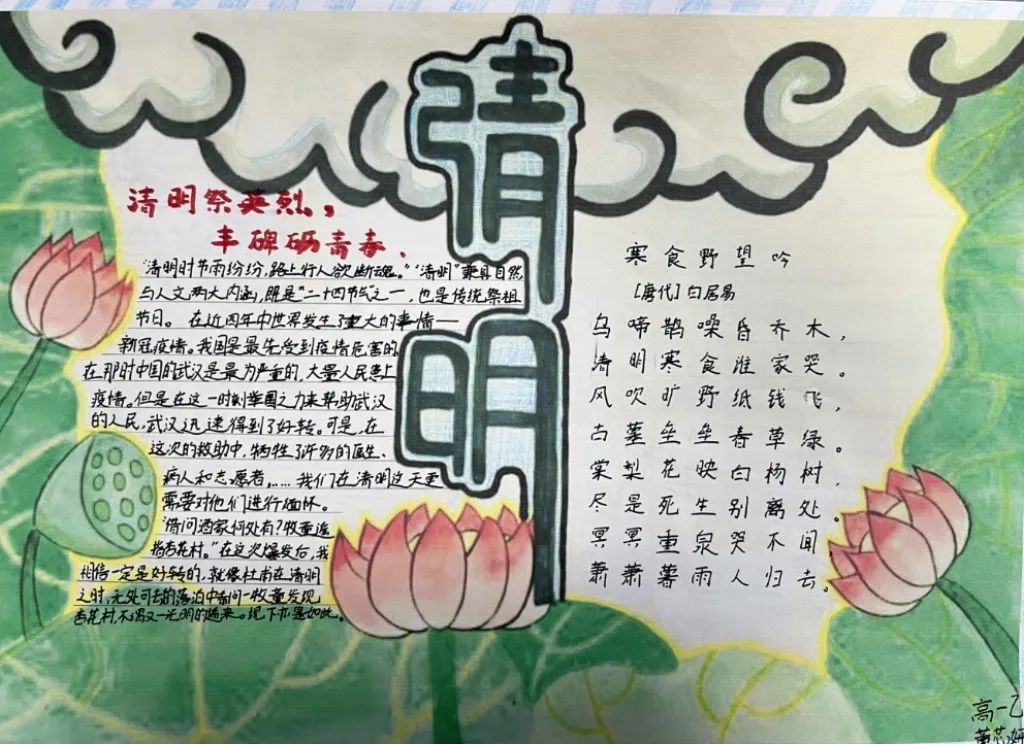 清明
清明祭英烈,
丰碑砺青春、
“清明时节雨纷纷,路上行人欲断魂。”“清明”兼具自然
与人文两大内涵,既是“二十四节气”之一,也是传统祭祖
节日。在近四年中世界发生了重大的事情——
新冠疫情。我国是最先受到疫情危害的
在那时中国的武汉是最为严重的,大量人民患上
疫情。但是在这一时刻举国之力来帮助武汉
的人民,武汉迅速得到了好转。可是,在
这次的救助中,牺牲了许多的医生、
病人和志愿者,……我们在清明这天更
需要对他们进行缅怀。
“借问酒家何处有?牧童遥
指杏花村。”在这次爆发后,我
相信一定是好转的,就像杜甫在清明
之时,无处可去的落泊中有问一牧童发现
杏花村,不信又一光明的
来。现下亦是如此。
寒食野望吟
[唐代]白居易
乌啼鹊噪昏乔木,
清明寒食谁家哭。
风吹旷野纸钱飞,
古墓垒垒春草绿。
棠梨花映白杨树,
尽是死生别离处。
冥冥重泉哭不闻
萧萧暮雨人归去。
高一乙